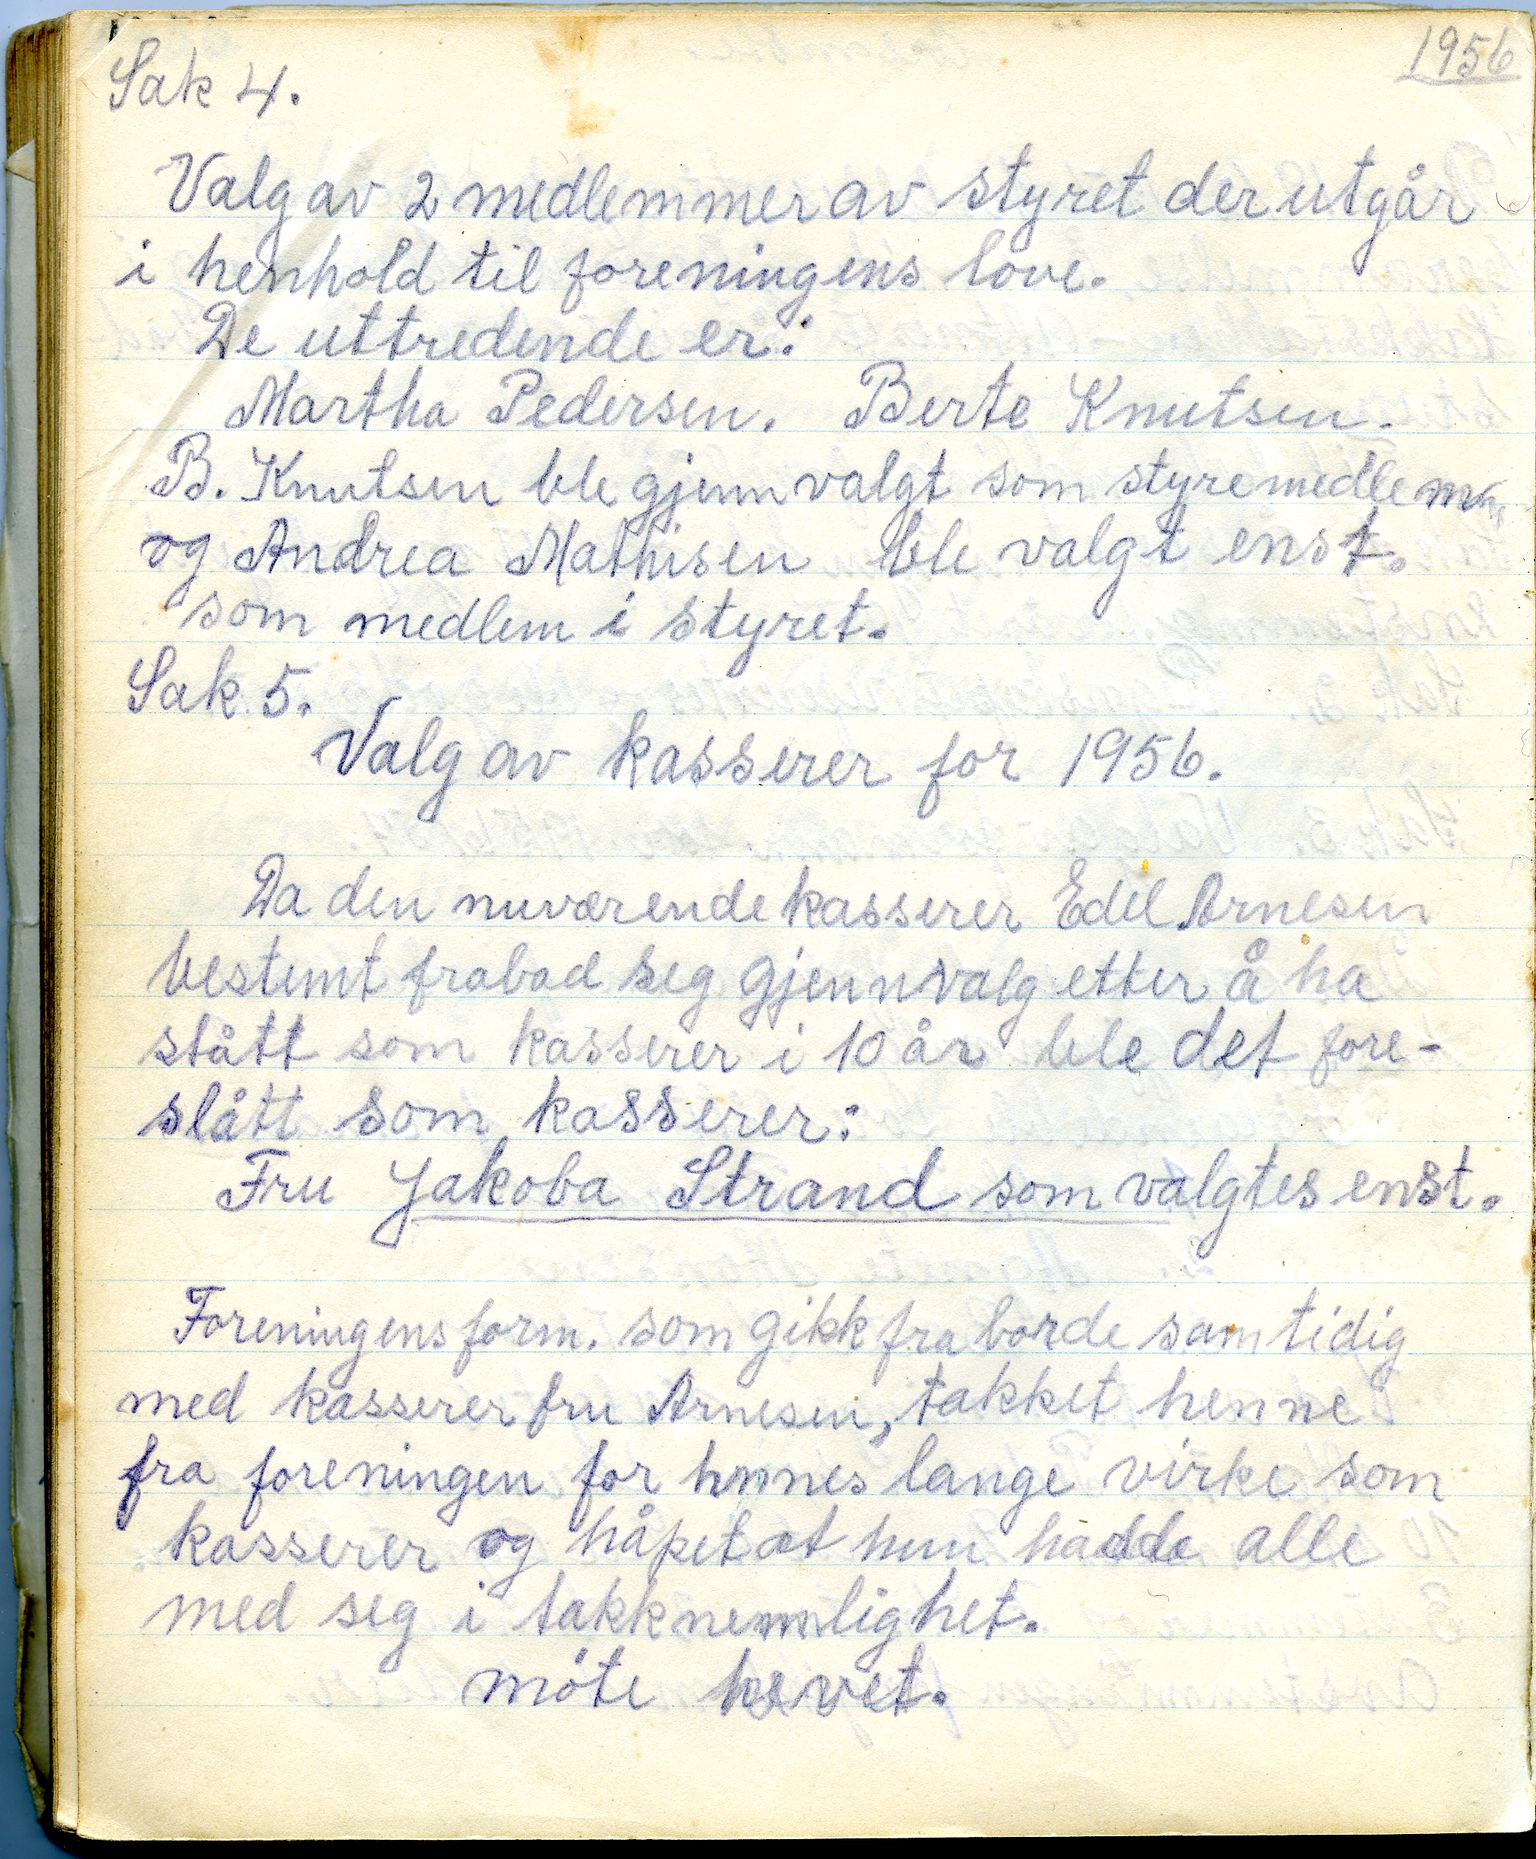 1956
Sak 4.
Valg av 2 medlemmer av styret der utgår
i henhold til foreningens love.
De uttredende er:
Martha Pedersen. Berte Knutsen.
B. Knutsen ble gjennvalgt som styremedlem,
og Andrea Mathisen ble valgt enst.
som medlem i styret.
Sak 5.
Valg av kasserer for 1956.
Da den nuværende kasserer Edel Arnesen
bestemt frabad seg gjennvalg etter å ha
stått som kasserer i 10 år ble det fore-
slått som kasserer:
Fru Jakoba Strand som valgtes enst.
Foreningens form. som gikk fra borde samtidig
med kasserer fru Arnesen, takket henne
fra foreningen for hennes lange virke som
kasserer og håpet at hun hadde alle
med seg i takknemlighet.
möte hevet.